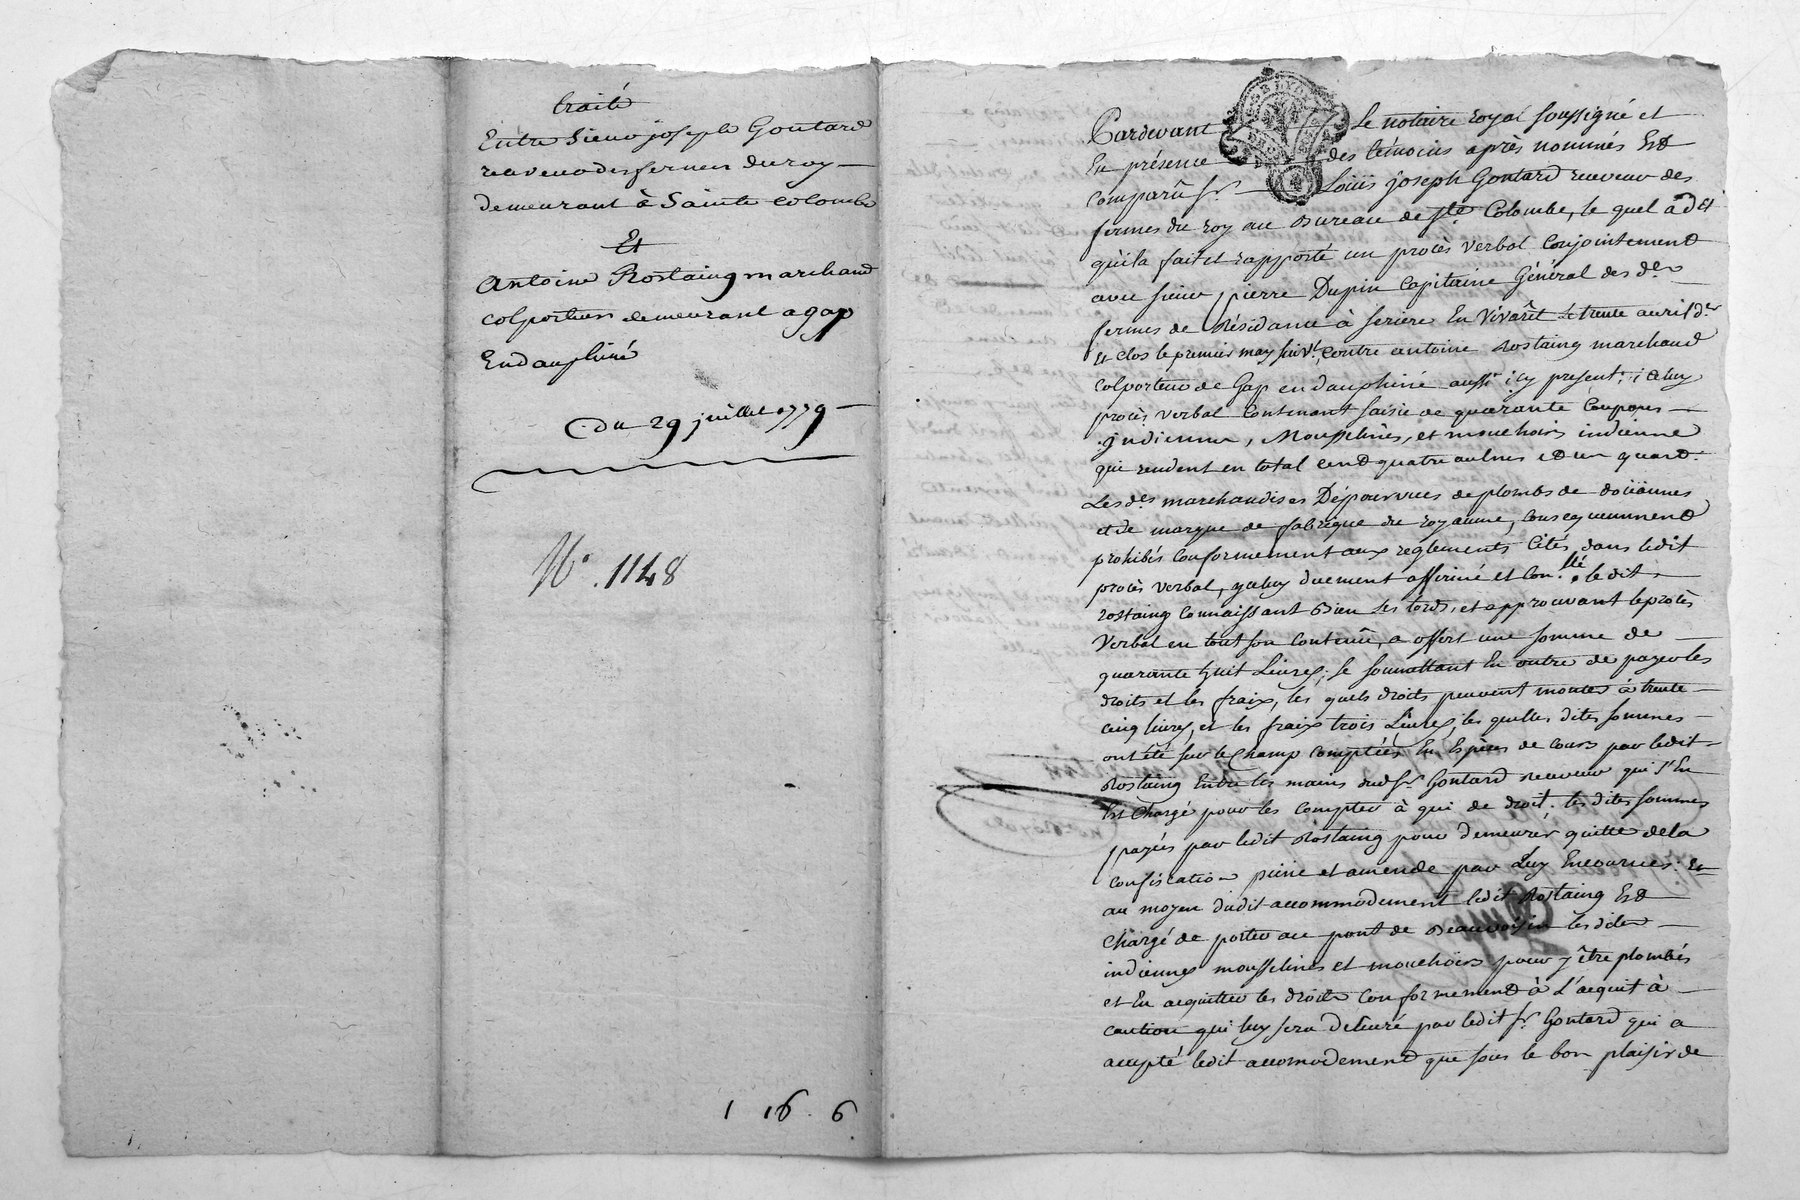 traité
Entre Sieur joseph Goutard
receveur des fermes du roy
demeurant à Sainte colombe
Et
Antoine Rostaing marchand
colporteur demeurant a gap
En dauphiné
du 29 juillet 1779
N.° 1148
1 16 6
Pardevant Le notaire royal soussigné et
En présence des témoins après nommés Est
comparû sr. Loüis joseph Goutard receveur des
fermes du roy au Bureau de ste. Colombe, le quel a dit
qu'il a fait et rapporté un procès verbal Conjointement
avec sieur pierre Dupin Capitaine Général des des.
fermes de Résidance à seriere En Vivarêt le trente avril der.
et clos le premier may suivt. Contre antoine Rostaing marchand
colporteur de Gap en dauphiné aussi icy present; iceluy
procès verbal Contenant saisie de quarante Coupons
indienne, Mousselines, et mouchoirs indienne
qui rendent en total cent quatre aulnes et un quart.
Les des. marchandises Dépourvues de plombs de doüannes
et de marque de fabrique du royaume, Consequemment
prohibés Conformement aux reglements Cités dans ledit
procès verbal, yceluy duement affirmé et Con.llé ledit
rostaing Connaissant Bien ses tords, et approuvant le procès
Verbal en tout son Contenû, a offert une somme de
quarante huit Livres, se soumettant En outre de payer les
droits et les fraix, les quels droits peuvent monter à trente
cinq livres, et les fraix trois Livres, les quelles dites sommes
ont été sur le Champ comptées En Espèces de cours par ledit
Rostaing Entre les mains dud sr. Goutard receveur qui s'En
Est Chargé pour les compter à qui de droit. les dites sommes
payées par ledit Rostaing pour demeurér quitte de la
confiscation peine et amende par Luy Encourues. Et
au moyen dudit accommodement ledit Rostaing Est
Chargé de porter au pont de Beauvoisin les dites
indiennes mousselines et mouchoirs pour y être plombés
et En acquitter les droits Conformement à L'acquit à
caution qui luy sera délivré par ledit sr. Goutard qui a
accepté ledit accomodement que sous le bon plaisir de